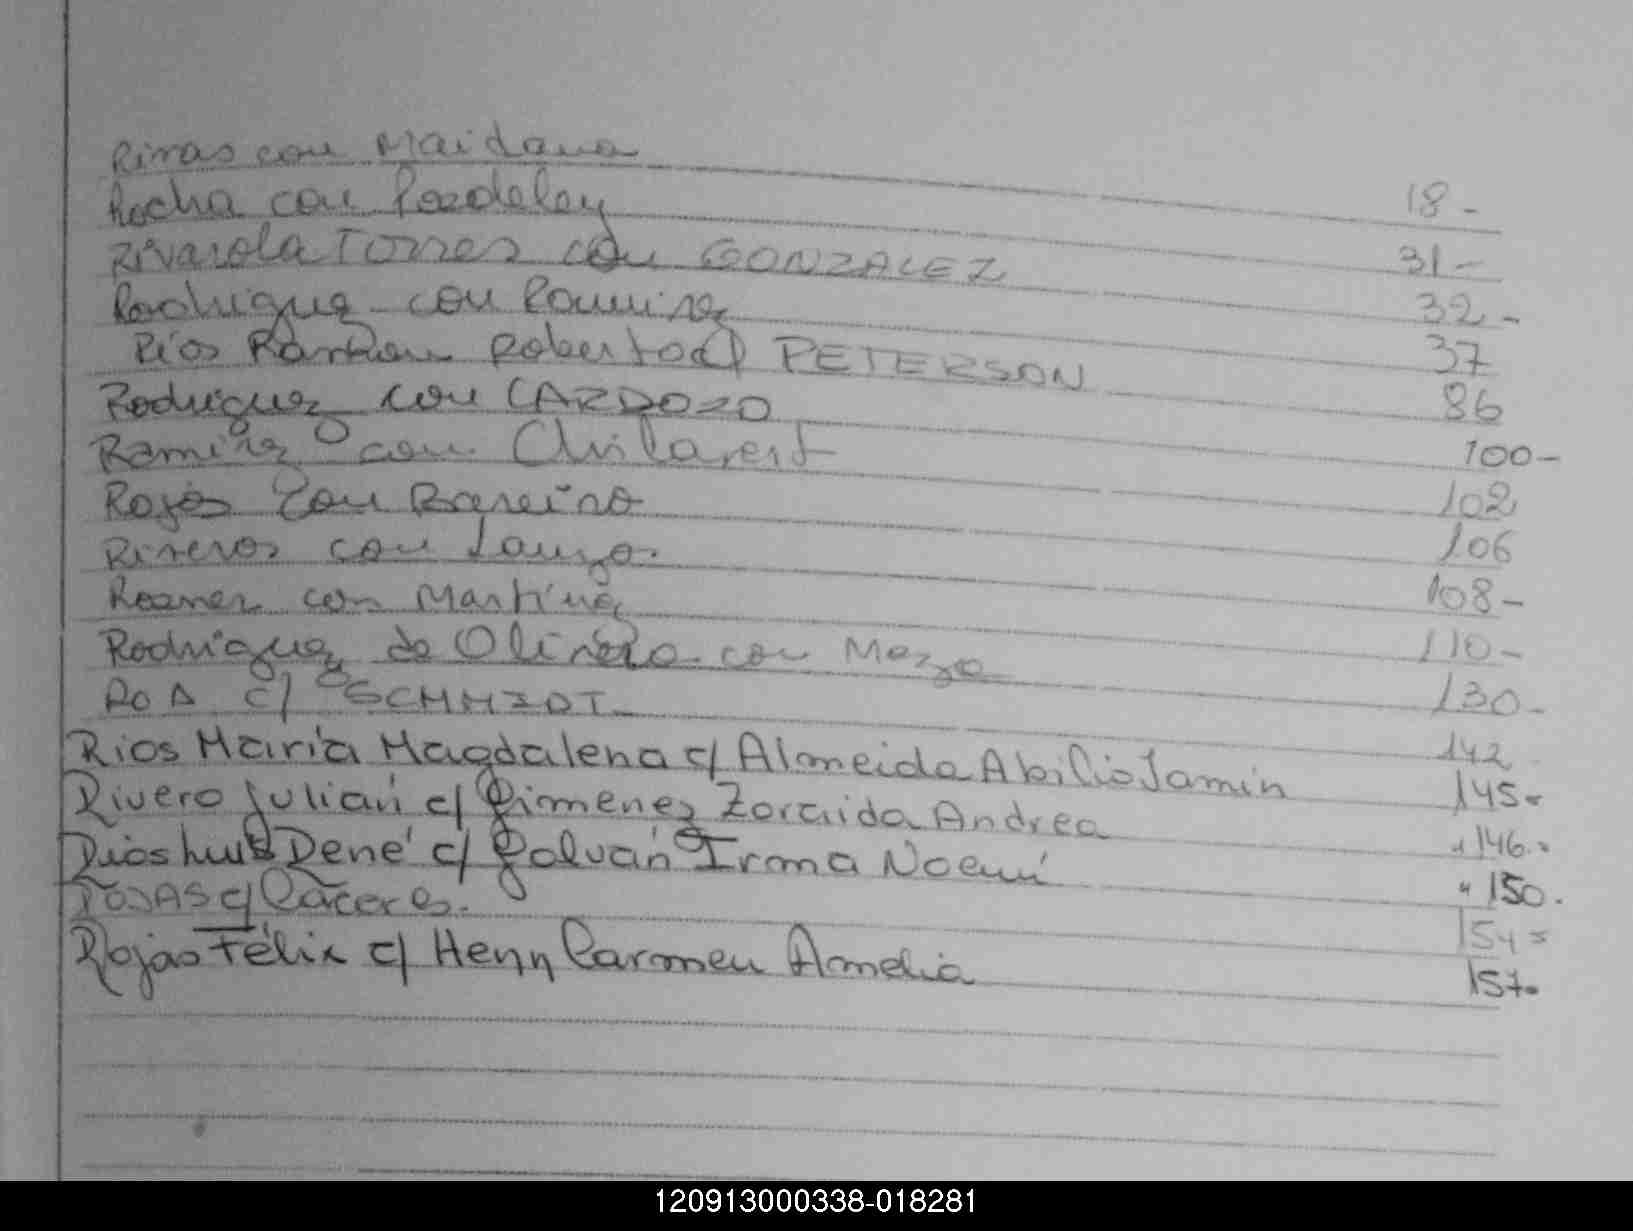 Rivas con Maidana 18-
Rocha con 31-
Rivarola Torres con GONZALEZ 32-
Rodriguez con Ramirez 37
Rios Ramon Roberto c/ PETERSON 86
Rodriguez con CARDOZO 100-
Ramirez con Chilavert 102
Rojas con Bareiro 106
Riveros con 108-
con Martinez 110-
Rodriguez de Olivera con Meza 130-
ROA c/ SCHMIDT 142
Rios Maria Magdalena c/ Almeida Abilio Jamin 145-
Rivero Julián c/ Gimenez Zoraida Andrea " 146-
Rios Luis René c/ Galván Irma Noemí " 150.
ROJAS c/ Caceres. 154-
Rojas Félix c/ Henn Carmen Amelia 157-
120913000338-018281